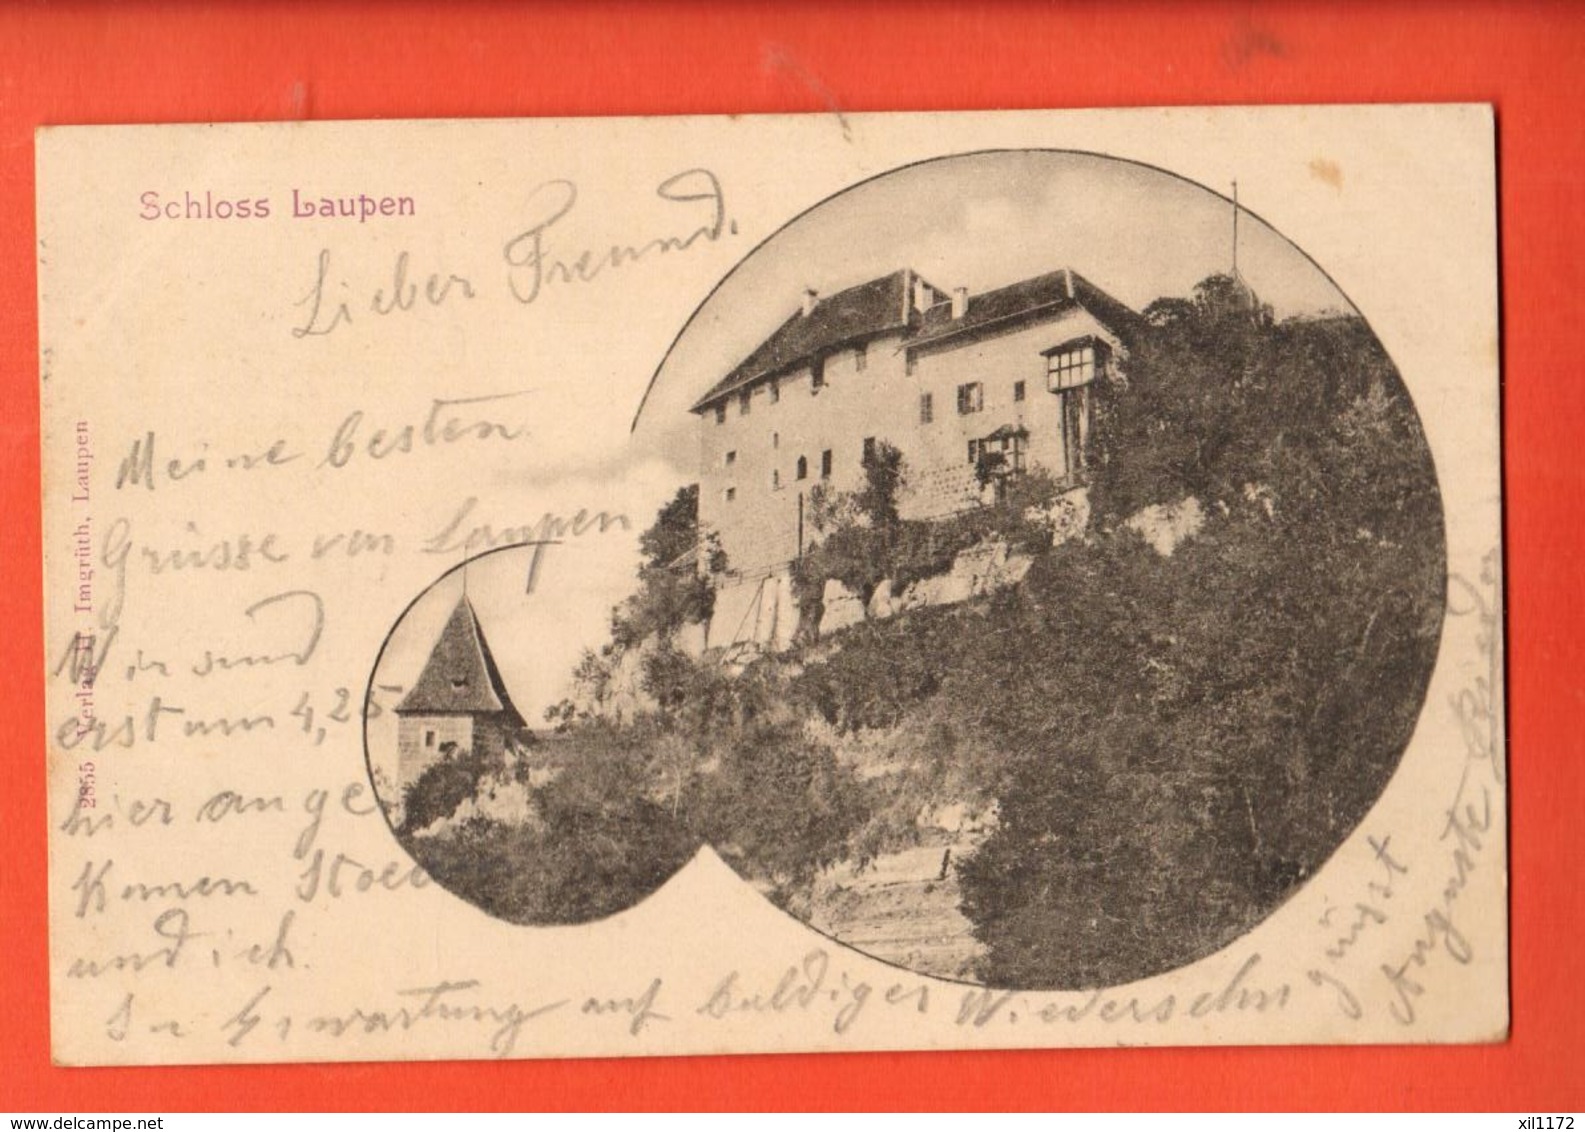 Schloss Laupen
Lieber Freund.
Meine besten
Grüsse von Laupen
Wir sind
erst um 4,25
hier ange
komen
und ich.
In Erwartung auf baldiges Wiedersehn
grüsst
Auguste
2855 Verlag H. Imgrüth, Laupen
delcampe.net
xil1172